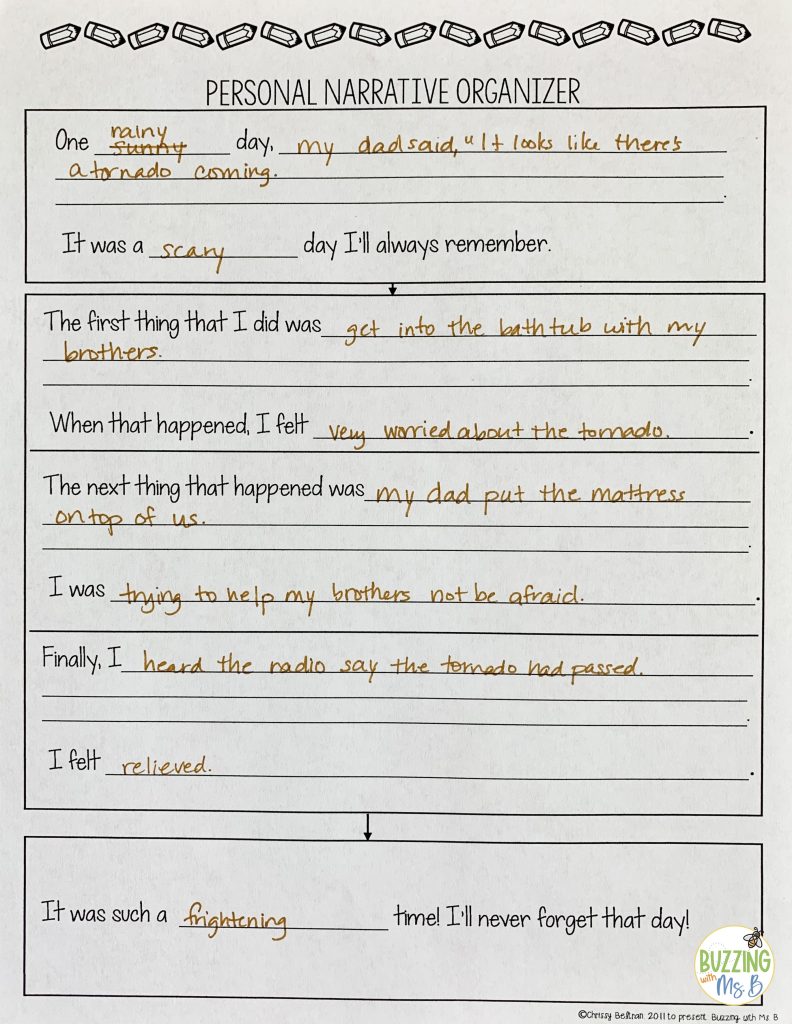 PERSONAL NARRATIVE ORGANIZER
One rainy sunny day, my dad said, "It looks like there's
a tornado coming.
.
It was a scary day I'll always remember.
The first thing that I did was get into the bathtub with my
brothers.
.
When that happened, I felt very worried about the tornado. .
The next thing that happened was my dad put the mattress
on top of us.
.
I was trying to help my brothers not be afraid. .
Finally, I heard the radio say the tornado had passed.
.
I felt relieved. .
It was such a frightening time! I'll never forget that day!
BUZZING
with
Ms. B
©Chrissy Beltran. 2011 to present. Buzzing with Ms. B